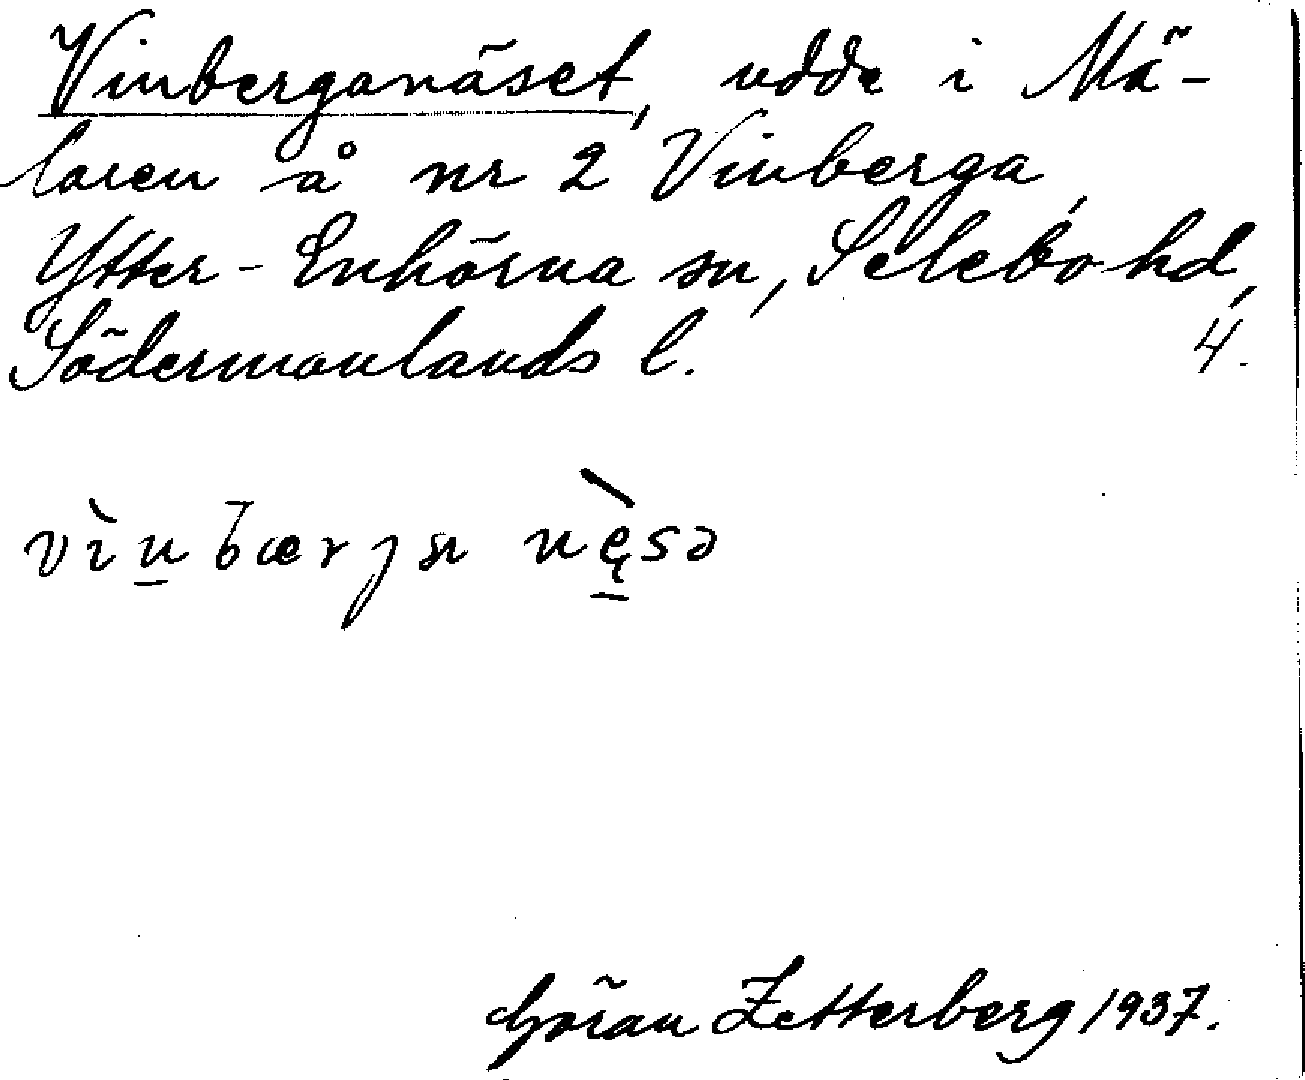 Vinberganäset, udde i Mä-
laren å nr 2 Vinberga,
Ytter-Enhörna sn, Selebo hd,
Södermanlands l. 4.
vìn̲bærjɑ nę̲̀sə
Göran Zetterberg 1937.